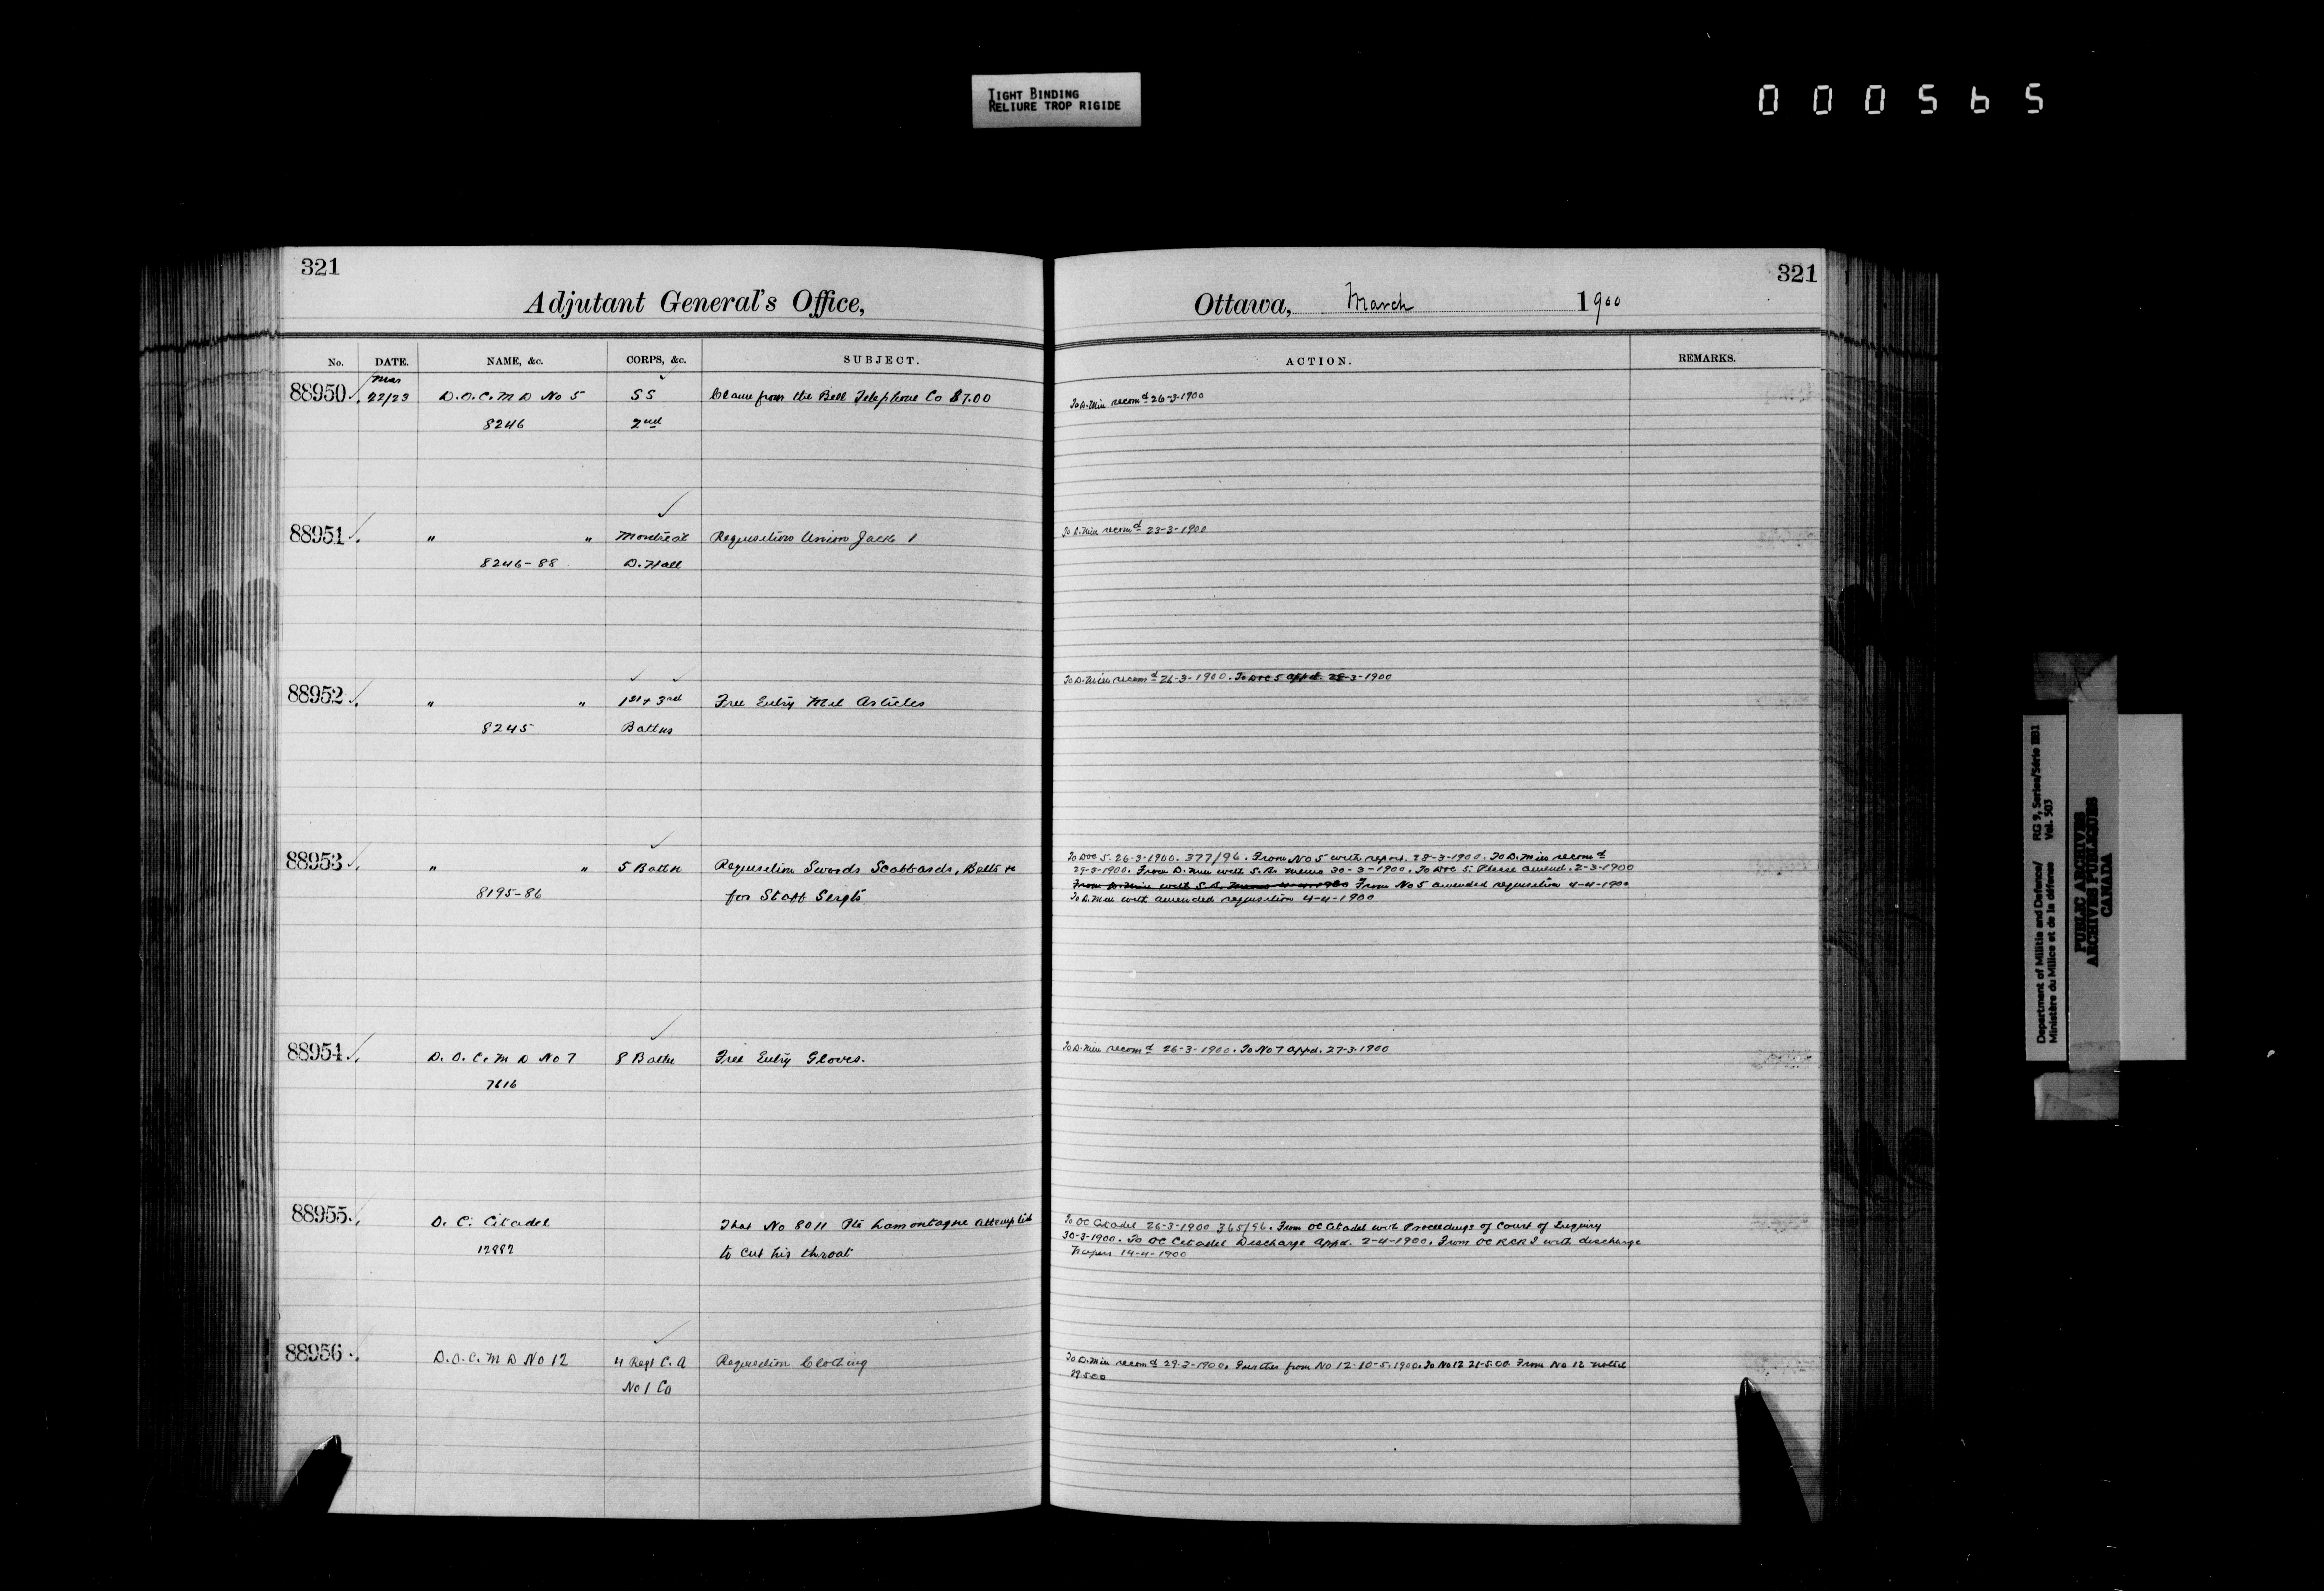 TIGHT BINDING
RELIURE TROP RIGIDE
000565
321
Adjutant General's Office,
No. DATE. NAME, &c. CORPS, &c. SUBJECT.
Mar
88950 22/23 D.O.C. M D No 5 SS Claim from the Bell Telephone Co $7.00
8246 2nd
88951 " " Montreal Requisition Union Jack 1
8246-88 D. Hall
88952 " " 1st + 3rd Free Entry Mil Articles
8245 Battns
88953 " " 5 Battn Requisition Swords Scabbards, Belts &c
8195-86 for Staff Sergts
88954 D. O. C. M D No 7 8 Battn Free Entry Gloves.
7616
88955 O. C. Citadel That No 8011 Pte Lamontagne attempted
12882 to cut his throat
88956 D.O.C. M D No 12 4 Regt C. A Requisition Clothing
No 1 Co
321
Ottawa, March 1900
ACTION. REMARKS.
To D. Min recomd 26-3-1900
To D. Min recomd 23-3-1900
To D. Min recomd 26-3-1900. To DOC 5 appd. 28-3-1900
To DOC 5. 26-3-1900. 377/96. From No 5 with report. 28-3-1900. To D. Min recomd
29-3-1900. From D. Min with S.A. memo 30-3-1900. To DOC 5. Please amend. 2-3-1900
From D. Min with S.A. Memo 4-4-1900 From No 5 amended requisition 4-4-1900
To D. Min with amended requisition 4-4-1900
To D. Min recomd 26-3-1900. To No 7 appd. 27-3-1900
To OC Citadel 26-3-1900 365/96. From OC Citadel with Proceedings of Court of Inquiry
30-3-1900. To OC Citadel Discharge Appd. 2-4-1900. From OC RCRI with discharge
Papers 14-4-1900
To D. Min recomd 29-3-1900. Further from No 12-10-5-1900. To No 12 21-5-00. From No 12 noted
29.5.00
Department of Militia and Defence/ RG 9, Series/Série IIB1
Ministère du Milice et de la défense Vol. 503
PUBLIC ARCHIVES
ARCHIVES PUBLIQUES
CANADA